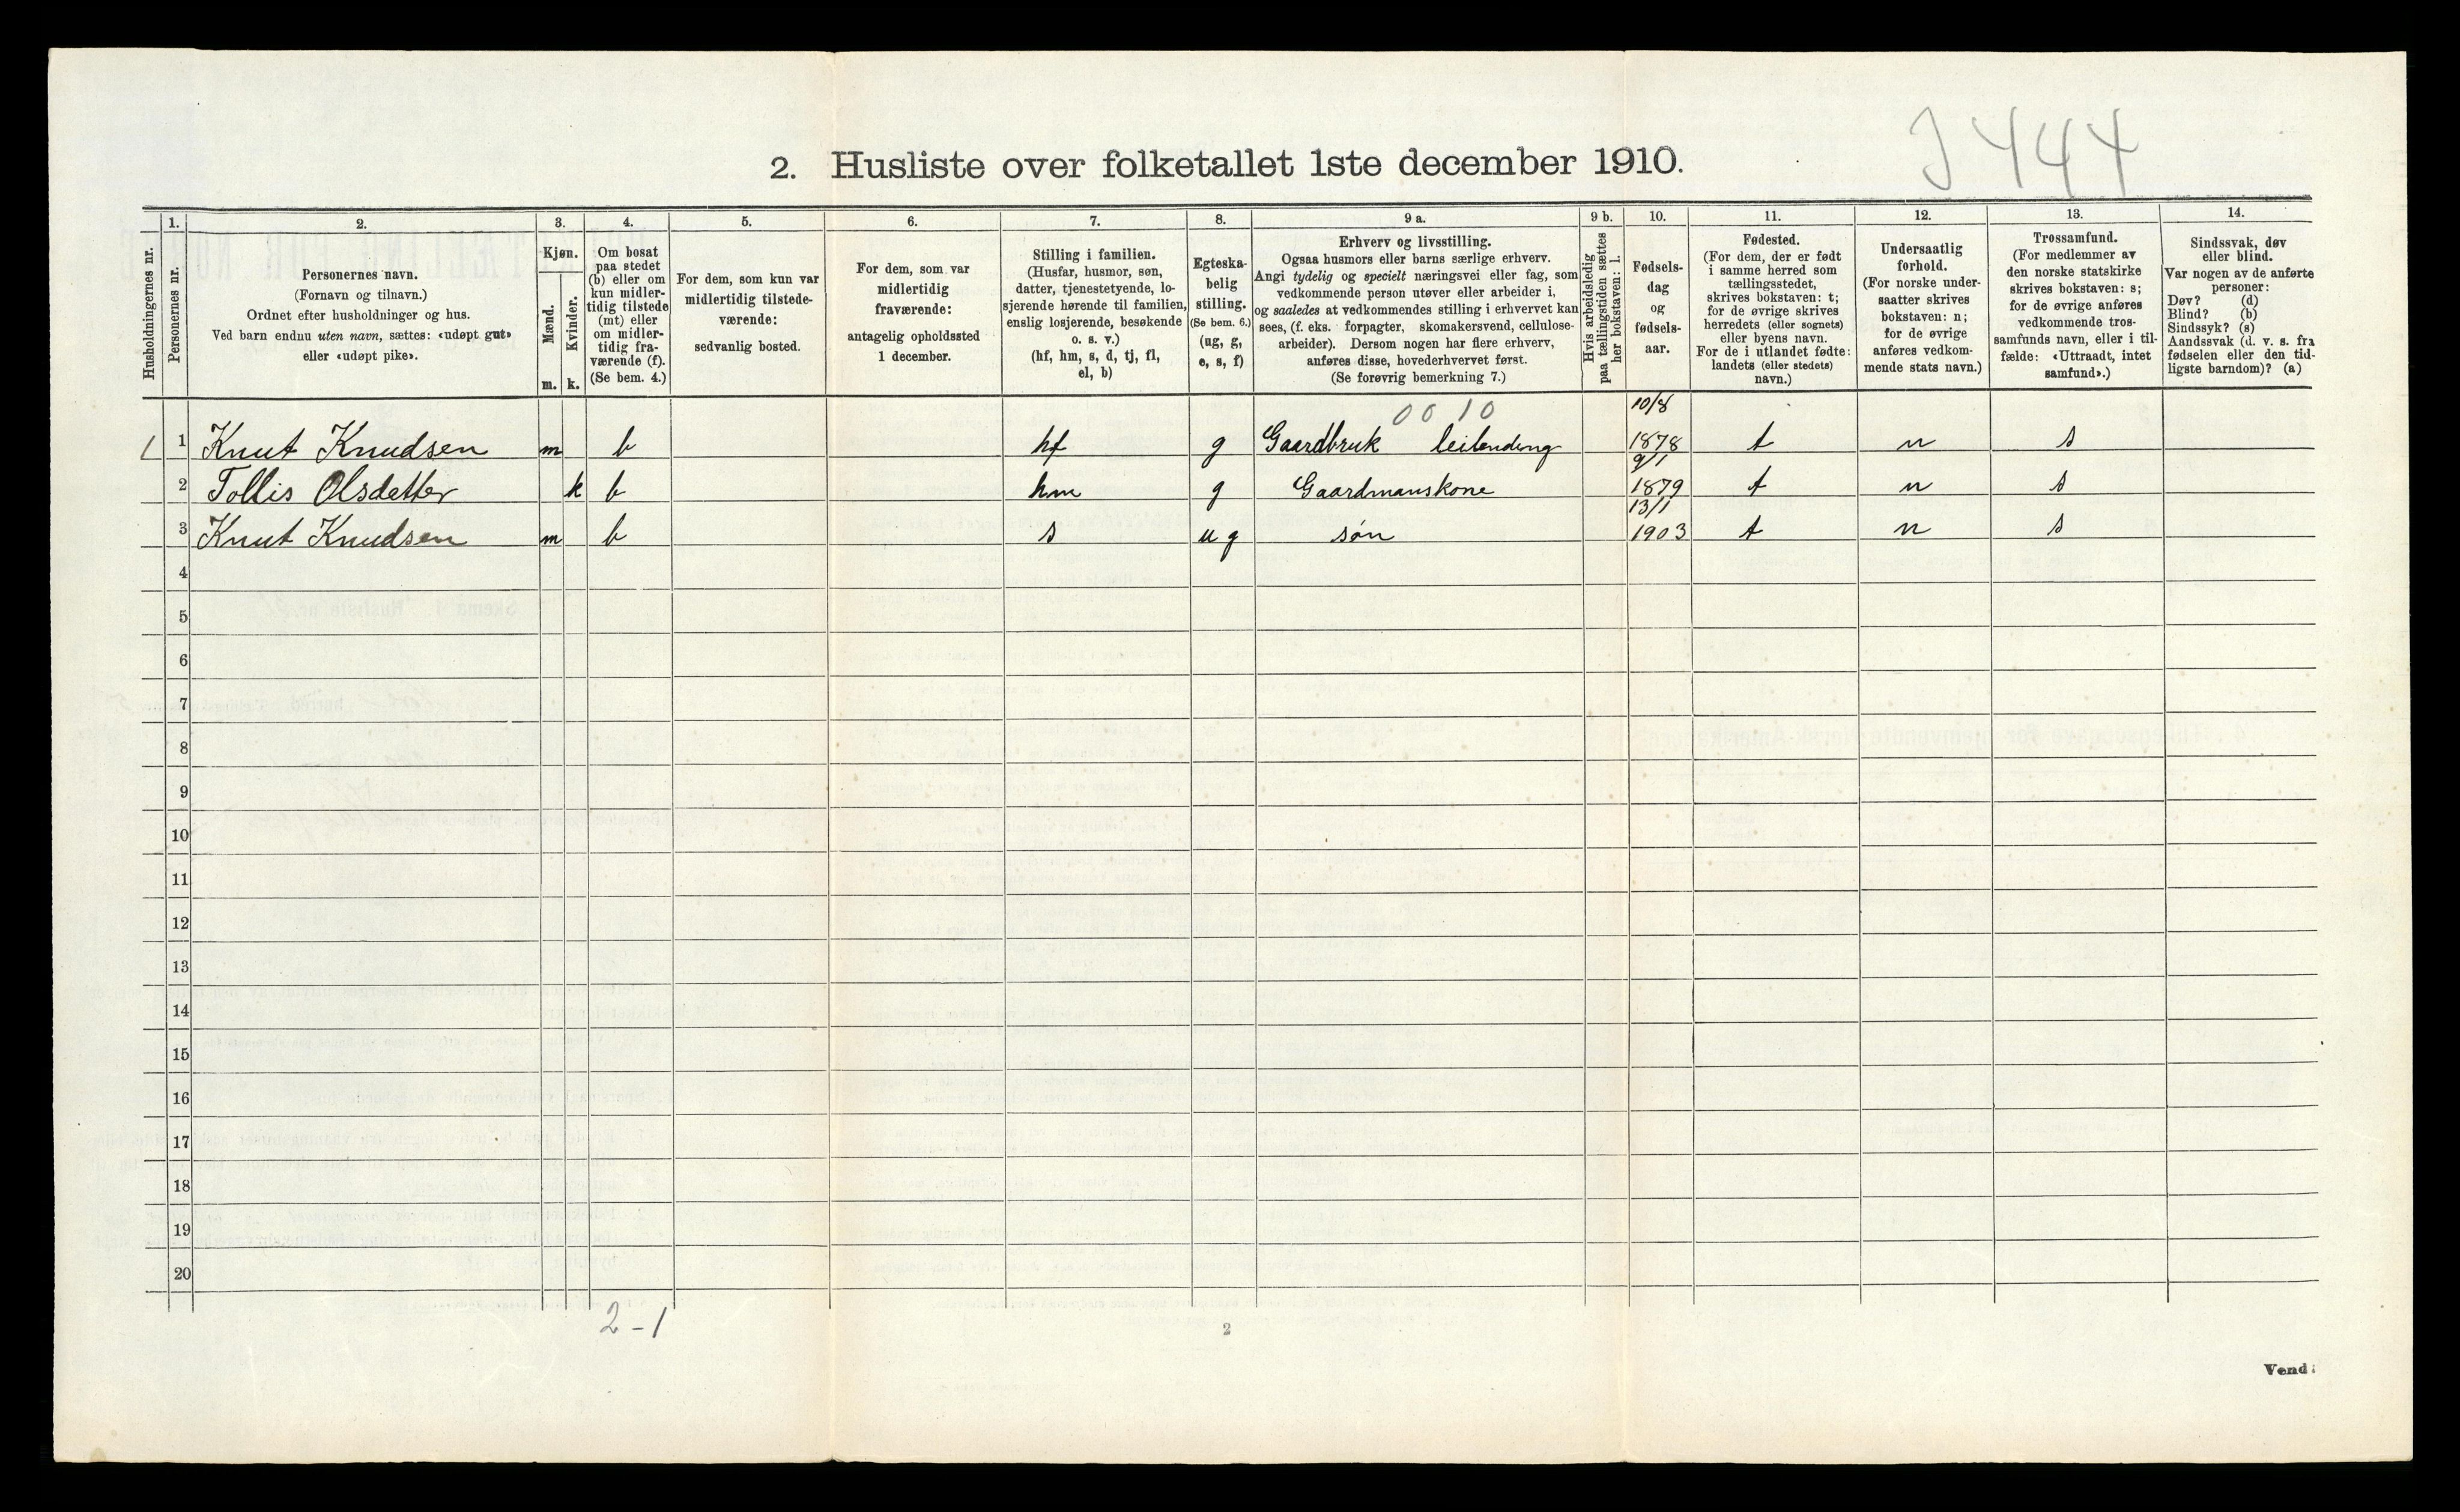 J 444
2. Husliste over folketallet 1ste december 1910.
Husholdningernes nr.
1.
Personernes nr.
2.
Personernes navn.
(Fornavn og tilnavn.)
Ordnet efter husholdninger og hus.
Ved barn endnu uten navn, sættes: «udøpt gut»
eller «udøpt pike».
3.
Kjøn.
Mænd.
m.
Kvinder.
k.
4.
Om bosat
paa stedet
(b) eller om
kun midler-
tidig tilstede
(mt) eller
om midler-
tidig fra-
værende (f).
(Se bem. 4.)
5.
For dem, som kun var
midlertidig tilstede-
værende:
sedvanlig bosted.
6.
For dem, som var
midlertidig
fraværende:
antagelig opholdssted
1 december.
7.
Stilling i familien.
(Husfar, husmor, søn,
datter, tjenestetyende, lo-
sjerende hørende til familien,
enslig losjerende, besøkende
o. s. v.)
(hf, hm, s, d, tj, fl,
el, b)
8.
Egteska-
belig
stilling.
(Se bem. 6.)
(ug, g,
e, s, f)
9 a.
Erhverv og livsstilling.
Ogsaa husmors eller barns særlige erhverv.
Angi tydelig og specielt næringsvei eller fag, som
vedkommende person utøver eller arbeider i,
og saaledes at vedkommendes stilling i erhvervet kan
sees, (f. eks. forpagter, skomakersvend, cellulose-
arbeider). Dersom nogen har flere erhverv,
anføres disse, hovederhvervet først.
(Se forøvrig bemerkning 7.)
9 b.
Hvis arbeidsledig
paa tællingstiden sættes
her bokstaven: l.
10.
Fødsels-
dag
og
fødsels-
aar.
11.
Fødested.
(For dem, der er født
i samme herred som
tællingsstedet,
skrives bokstaven: t;
for de øvrige skrives
herredets (eller sognets)
eller byens navn.
For de i utlandet fødte:
landets (eller stedets)
navn.)
12.
Undersaatlig
forhold.
(For norske under-
saatter skrives
bokstaven: n;
for de øvrige
anføres vedkom-
mende stats navn.)
13.
Trossamfund.
(For medlemmer av
den norske statskirke
skrives bokstaven: s;
for de øvrige anføres
vedkommende tros-
samfunds navn, eller i til-
fælde: «Uttraadt, intet
samfund».)
14.
Sindssvak, døv
eller blind.
Var nogen av de anførte
personer:
Døv? (d)
Blind? (b)
Sindssyk? (s)
Aandssvak (d. v. s. fra
fødselen eller den tid-
ligste barndom)? (a)
0010 10/8
1 1 Knut Knudsen m b hf g Gaardbruk leilending 1878 t n s
9/1
2 Tollis Olsdatter k b hm g Gaardmanskone 1879 t n s
13/1
3 Knut Knudsen m b s ug søn 1903 t n s
4
5
6
7
8
9
10
11
12
13
14
15
16
17
18
19
20
2-1
2
Vend!